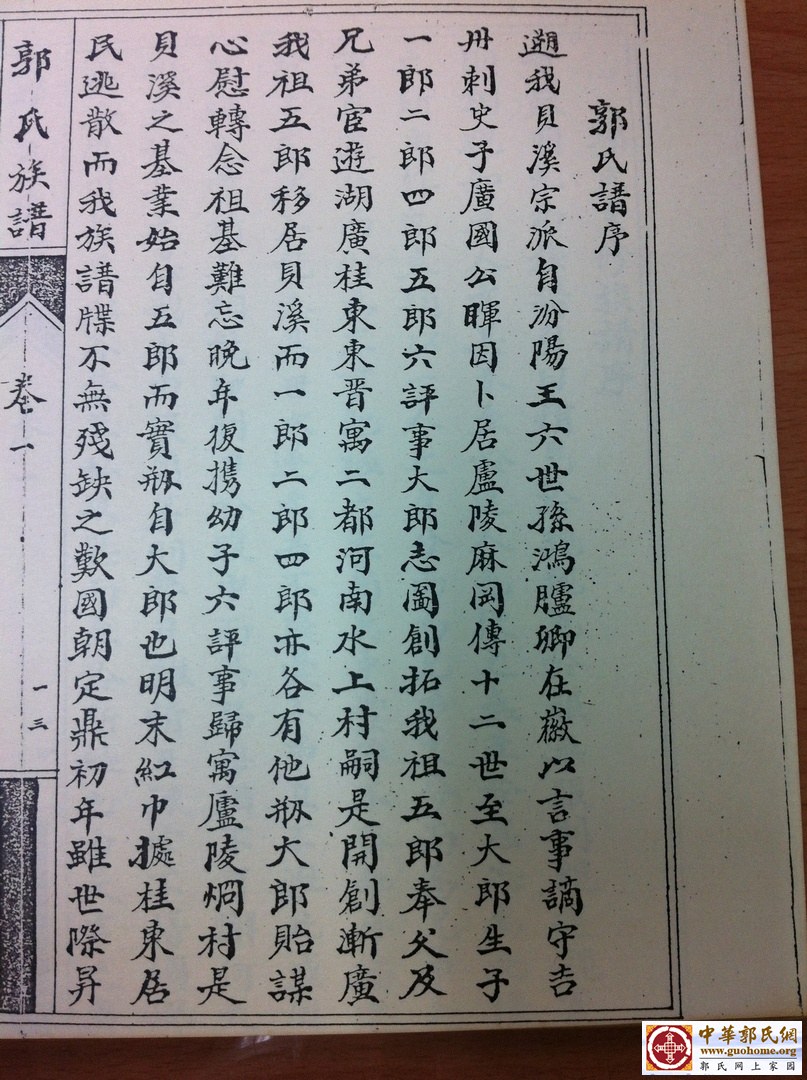 郭氏譜序
遡我貝溪宗派自汾陽王六世孫鴻臚卿在徽以言事謫守吉
州刺史子廣國公暉因卜居廬陵麻岡傳十二世至大郎生子
一郎二郎四郎五郎六評事大郎志圖創拓我祖五郎奉父及
兄弟宦遊湖廣桂東東晋寓二都河南水上村嗣是開創漸廣
我祖五郎移居貝溪而一郎二郎四郎亦各有他刱大郎貽謀
心慰轉念祖基難忘晚年復携幼子六評事歸寓廬陵烱村是
貝溪之基業始自五郎而實刱自大郎也明末紅巾據桂東居
民逃散而我族譜牒不無殘缺之歎國朝定鼎初年雖世際昇
郭氏族譜
卷一
一三
中華郭氏網
www.guohome.org
郭氏网上家园